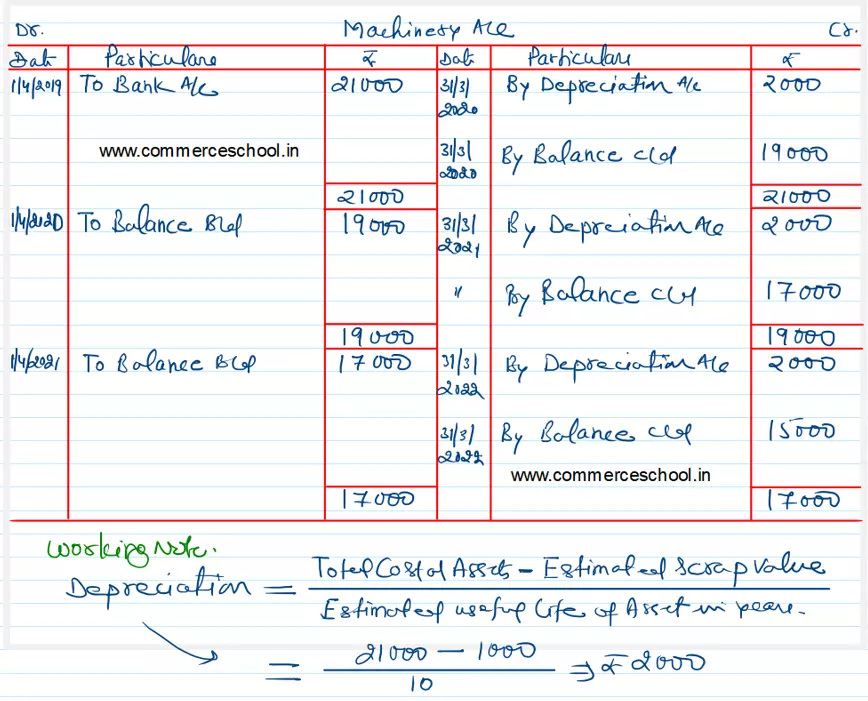 Dr. Machinery A/c Cr.
Date Particulars ₹ Date Particulars ₹
1/4/2019 To Bank A/c 21000 31/3/2020 By Depreciation A/c 2000
www.commerceschool.in 31/3/2020 By Balance c/d 19000
21000 21000
1/4/2020 To Balance B/d 19000 31/3/2021 By Depreciation A/c 2000
" By Balance c/d 17000
19000 19000
1/4/2021 To Balance B/d 17000 31/3/2022 By Depreciation A/c 2000
31/3/2022 By Balance c/d 15000
www.commerceschool.in
17000 17000
Working Note.
Depreciation = Total Cost of Asset - Estimated Scrap Value
Estimated useful life of Asset in years.
= 21000 - 1000 ⇒ ₹ 2000
10